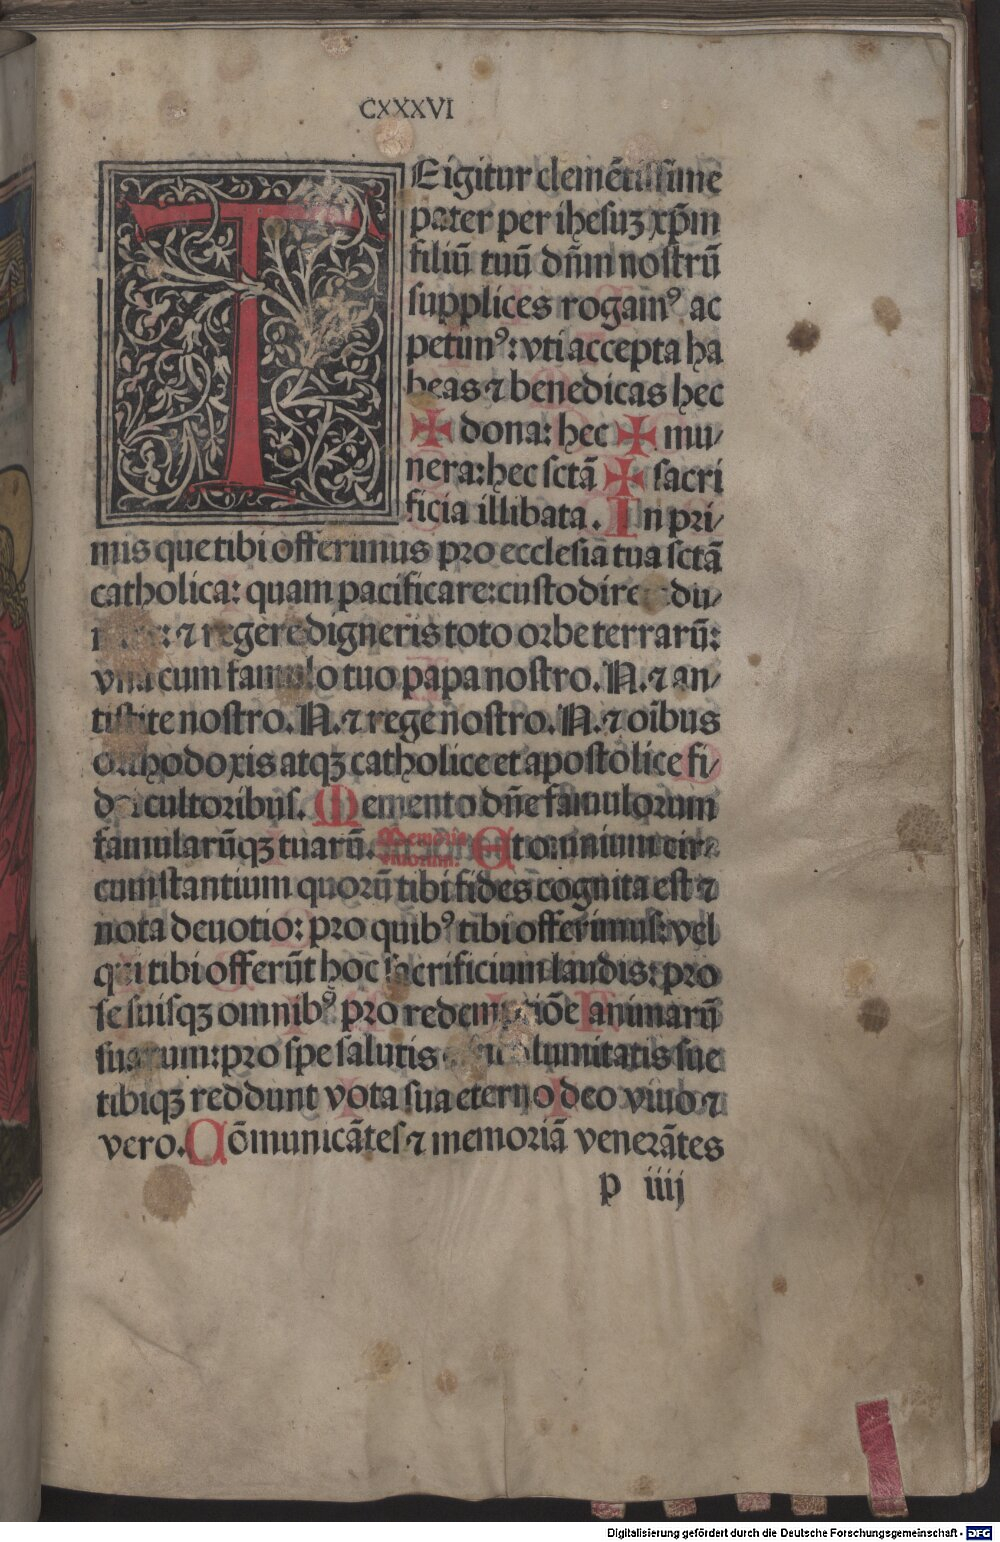 CXXXVI
TEigitur clemētissime
pater per ihesuꝫ xp̄m
filiū tuū dn̄m nostrū
supplices rogamꝰ ac
petimꝰ: vti accepta ha
beas ⁊ benedicas hec
✠ dona: hec ✠ mu/
nera: hec sctā ✠ sacri
ficia illibata. In pri/
mis que tibi offerimus pro ecclesia tua sctā
catholica: quam pacificare: custodire: adu/
⁊ regere digneris toto orbe terrarū:
vna cum famulo tuo papa nostro. N. ⁊ an/
tistite nostro. N. ⁊ rege nostro. N. ⁊ oībus
orthodoxis atqꝫ catholice et apostolice fi/
dei cultoribus. Memento dn̄e famulorum
famularūqꝫ tuarū. Memoria viuorum. Et omnium cir
cumstantium quorū tibi fides cognita est ⁊
nota deuotio: pro quibꝰ tibi offerimus: vel
qui tibi offerūt hoc sacrificium laudis: pro
se suisqꝫ omnibꝰ pro redemptiōe animarū
suarum: pro spe salutis incolumitatis sue
tibiqꝫ reddunt vota sua eterno deo viuo ⁊
vero. Cōmunicātes ⁊ memoriā venerātes
p iiij
Digitalisierung gefördert durch die Deutsche Forschungsgemeinschaft - DFG